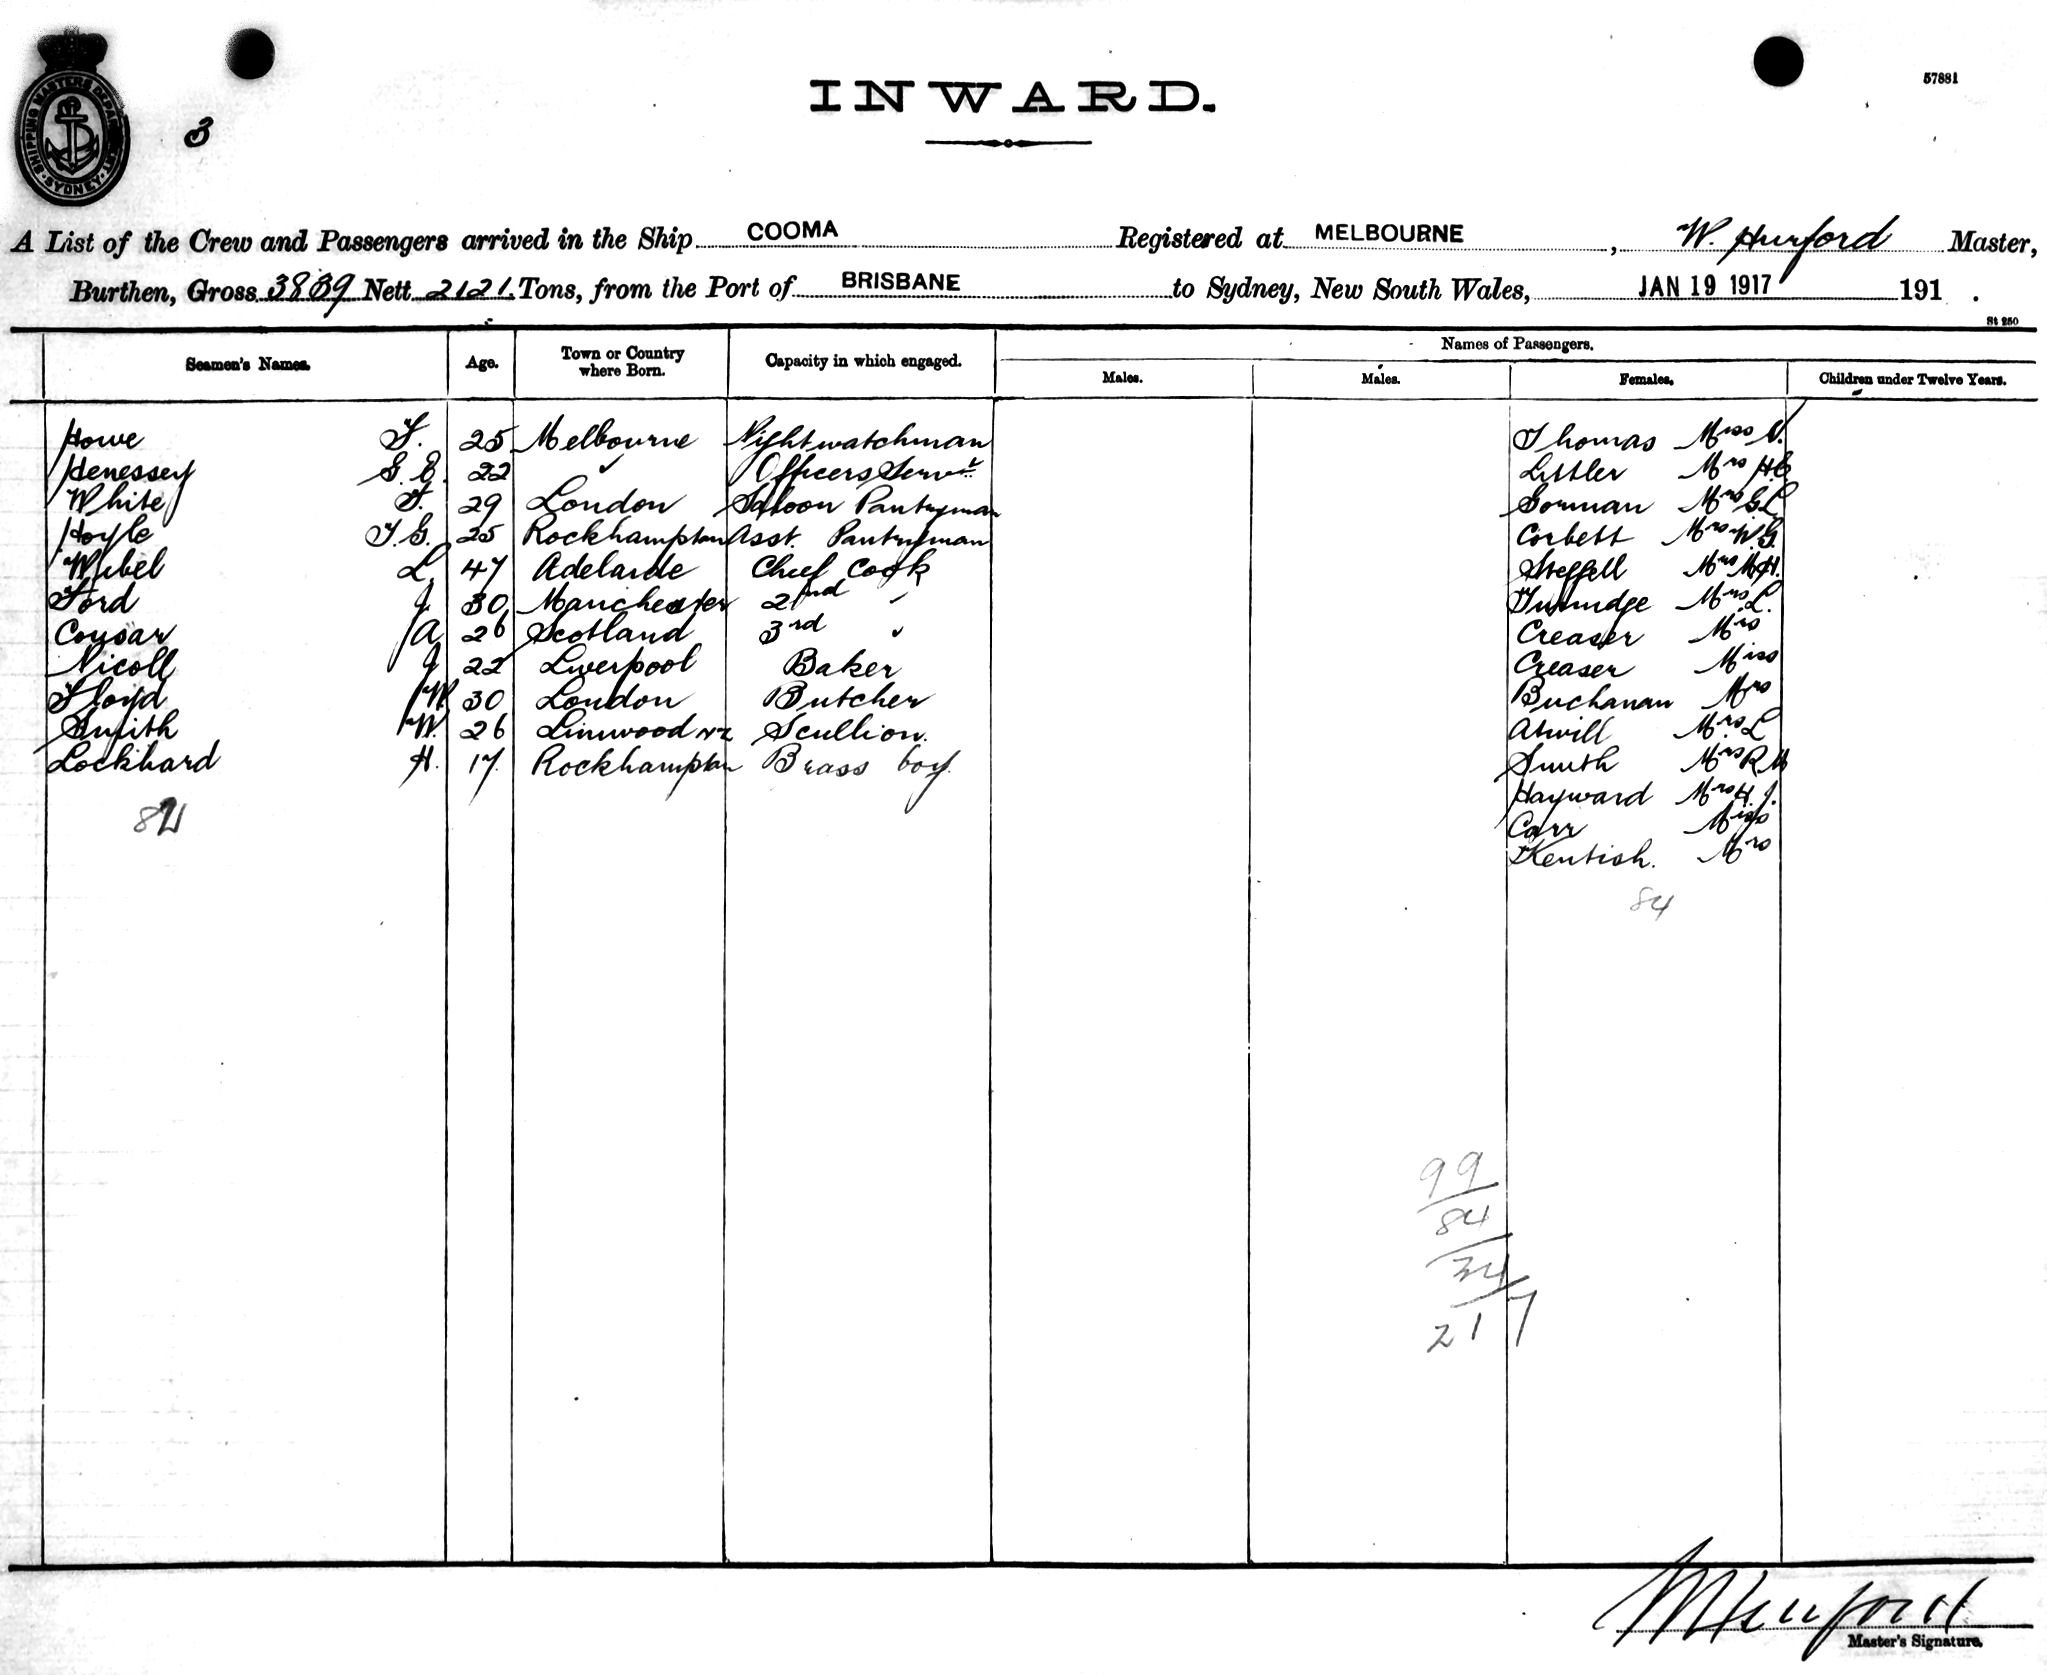 57881
INWARD.
SHIPPING MASTERS DEPARTMENT SYDNEY
3
A List of the Crew and Passengers arrived in the Ship COOMA Registered at MELBOURNE, W. Hurford Master,
Burthen, Gross 3839 Nett 2121. Tons, from the Port of BRISBANE to Sydney, New South Wales, JAN 19 1917 191 .
St 250
Seamen's Names. Age. Town or Country where Born. Capacity in which engaged. Names of Passengers.
Males. Males. Females. Children under Twelve Years.
Howe F. 25 Melbourne Nightwatchman Thomas Miss V.
Henessey G. E. 22 " Officers Servt Littler Mrs H.E.
White F. 29 London Saloon Pantryman Gorman Mrs G L
Hoyle T. G. 25 Rockhampton Asst. Pantryman Corbett Mrs W G.
Wibel L. 47 Adelaide Chief Cook Steggell Mrs M H.
Ford J 30 Manchester 2nd " Mrs L.
Cousar A 26 Scotland 3rd " Creaser Mrs
Nicoll J 22 Liverpool Baker Creaser Miss
Floyd W 30 London Butcher Buchanan Mrs
Smith W. 26 Linwood NZ Scullion. Atwill Mrs L
Lockhard H. 17 Rockhampton Brass boy. Smith Mrs R M
Hayward Mrs H. J.
Carr Miss
Kentish. Mrs
84
99
84
34
217
W Hurford
Master's Signature.